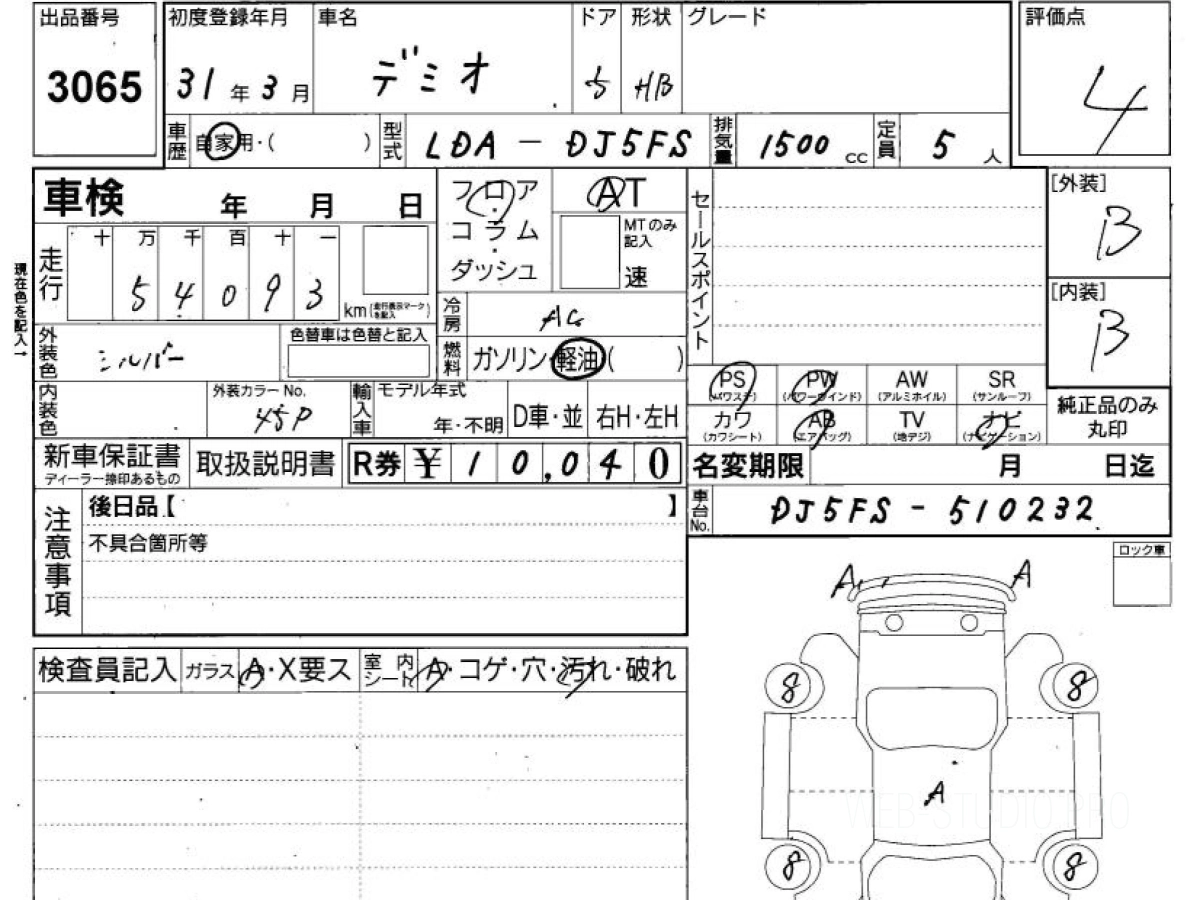 出品番号 初度登録年月 車名 ドア 形状 グレード 評価点
3065 31年3月 デミオ 5 HB 4
車歴 自家用・( ) 型式 LDA - DJ5FS 排気量 1500 cc 定員 5 人
車検 年 月 日 フロア・コラム・ダッシュ AT セールスポイント [外装]
B
走行 十 万 千 百 十 一 MTのみ記入
5 4 0 9 3 km (走行表示マークを記入) 速
現在色を記入→
[内装]
B
冷房 AC
外装色 シルバー 色替車は色替と記入
燃料 ガソリン・軽油( )
PS (パワステ) PW (パワーウインド) AW (アルミホイル) SR (サンルーフ)
内装色 外装カラーNo. 45P 輸入車 モデル年式 年・不明 D車・並 右H・左H
カワ (カワシート) AB (エアバッグ) TV (地デジ) ナビ (ナビゲーション)
純正品のみ丸印
新車保証書 ディーラー捺印あるもの 取扱説明書 R券 ¥ 10,040 名変期限 月 日迄
車台No. DJ5FS - 510232
注意事項 後日品【 】
不具合箇所等
ロック車
A A
検査員記入 ガラス A・X要ス 室内シート A・コゲ・穴・汚れ・破れ
8 8
A
WEB-STUDIO PRO
8 8